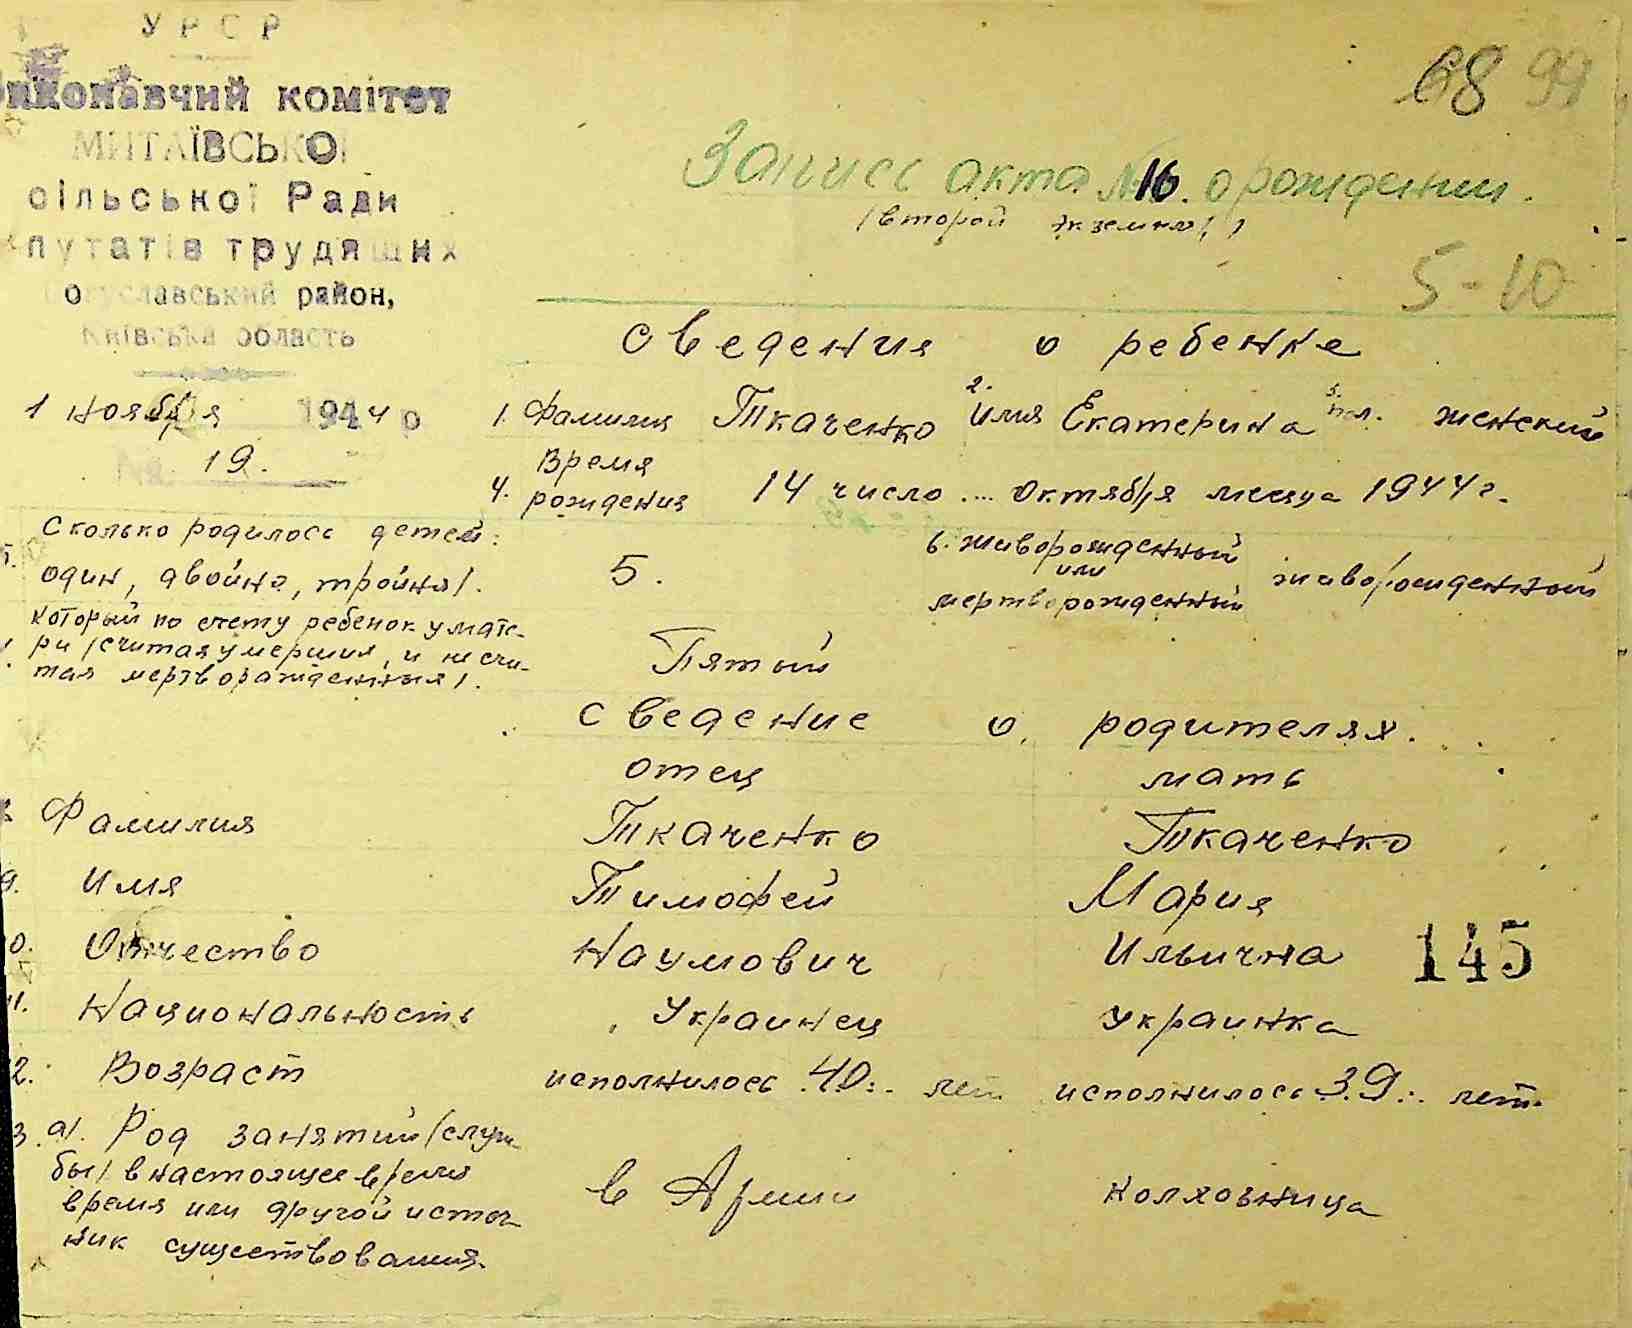 УРСР
Виконавчий комітет
МИТАЇВСЬКОЇ
сільської Ради
депутатів трудящих
Богуславський район,
Київська область
1 ноября 1944 р
№ 19.
68 99
Запись акта №16. о рождении.
(второй экземпл.)
5-10
сведения о ребенке
1. Фамилия Ткаченко 2. Имя Екатерина 3. пол. женский
4. Время рождения 14 число .... Октября месяца 1944 г.
5. Сколько родилось детей:
один, двойня, тройня/.
5.
6. живорожденный
или
мертворожденный
живорожденный
который по счету ребенок у мате-
ри /считая умерших, и не счи-
тая мертворажденных/.
Пятый
сведение о родителях.
отец мать
8. Фамилия Ткаченко Ткаченко
9. Имя Тимофей Мария
10. Отчество Наумович Ильична
145
11. Национальность Украинец Украинка
12. Возраст исполнилось 40 лет исполнилось 39 лет.
13. а/. Род занятий /служ-
бы/ в настоящее время
время или другой источ-
ник существования.
в Армии колхозница